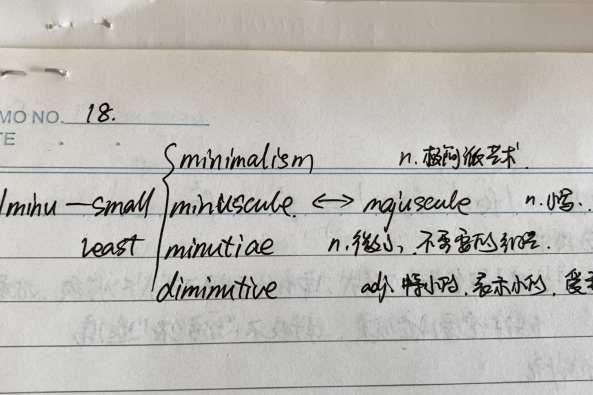 MO NO. 18.
TE
minimalism n. 极简派艺术
/minu — small minuscule. ↔ majuscule n. 小写.
least minutiae n. 微小, 不重要的细节.
diminutive adj. 特小的, 表示小的, 爱